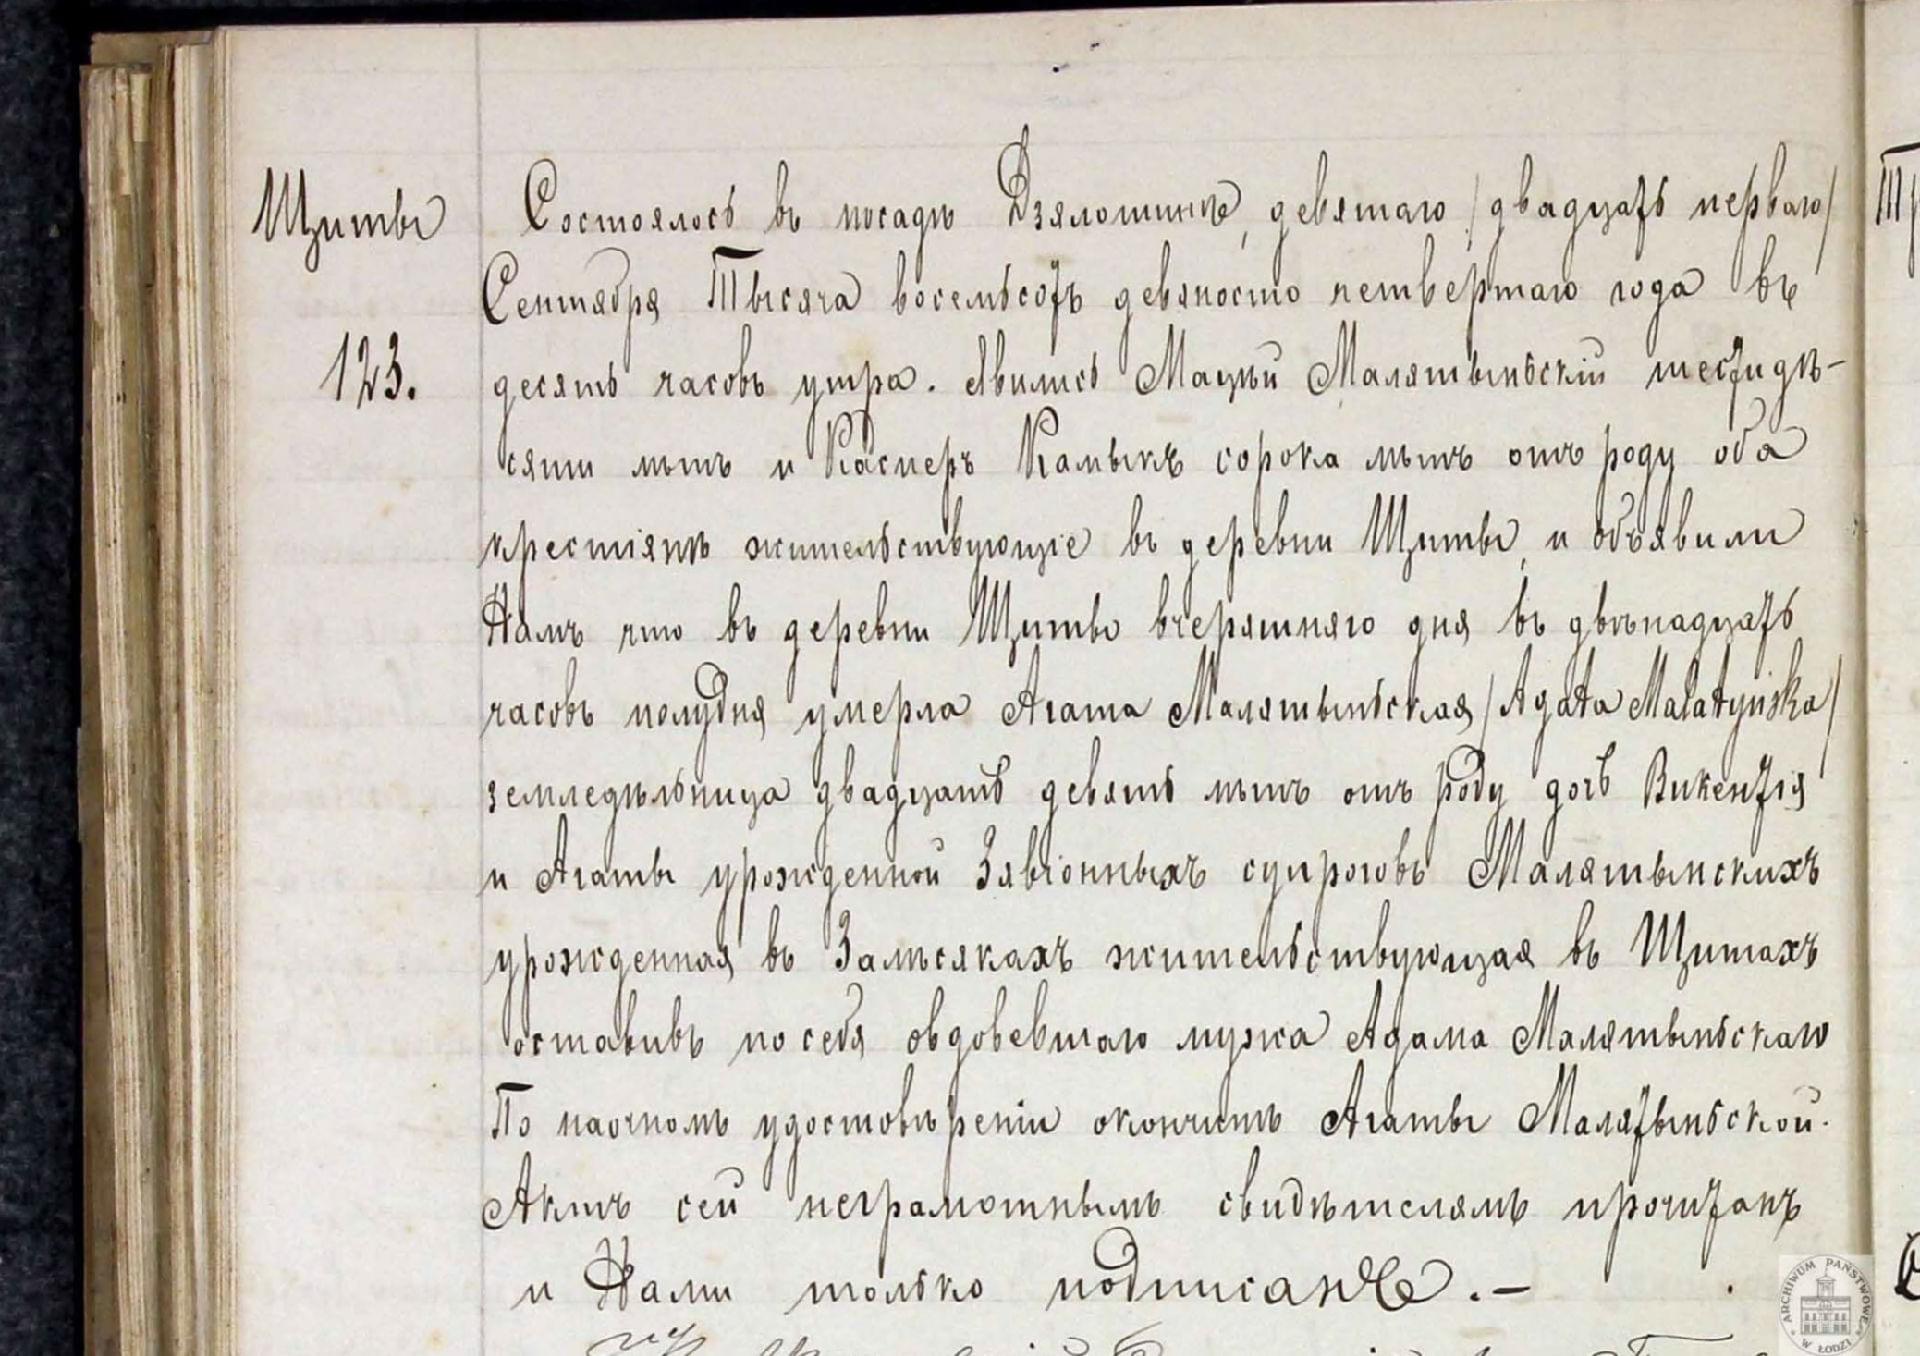 Щиты
123.
Состоялось въ посадѣ Дзялошинѣ, девятаго /двадцать перваго/
Сентября Тысяча восемьсотъ девяносто четвертаго года въ
десять часовъ утра. Явились Мацѣй Малятыньскій шестидѣ-
сяти лѣтъ и Касперъ Камыкъ сорока лѣтъ отъ роду оба
крестіянѣ жительствующіе въ деревни Щиты, и объявили
Намъ что въ деревни Щиты вчерашняго дня въ двѣнадцать
часовъ полудня умерла Агата Малятыньская /Agata Małatyńska/
земледѣльница двадцать девять лѣтъ отъ роду дочь Викентія
и Агаты урожденной супруговъ Малятынскихъ
урожденная въ Залѣсякахъ жительствующая въ Щитахъ
оставивъ по себя овдовевшаго мужа Адама Малятыньскаго
По наочномъ удостовѣреніи Агаты Малятыньской.
Актъ сей неграмотнымъ свидѣтелямъ прочитанъ
и Нами только подписанъ. —
ARCHIWUM PAŃSTWOWE W ŁODZI